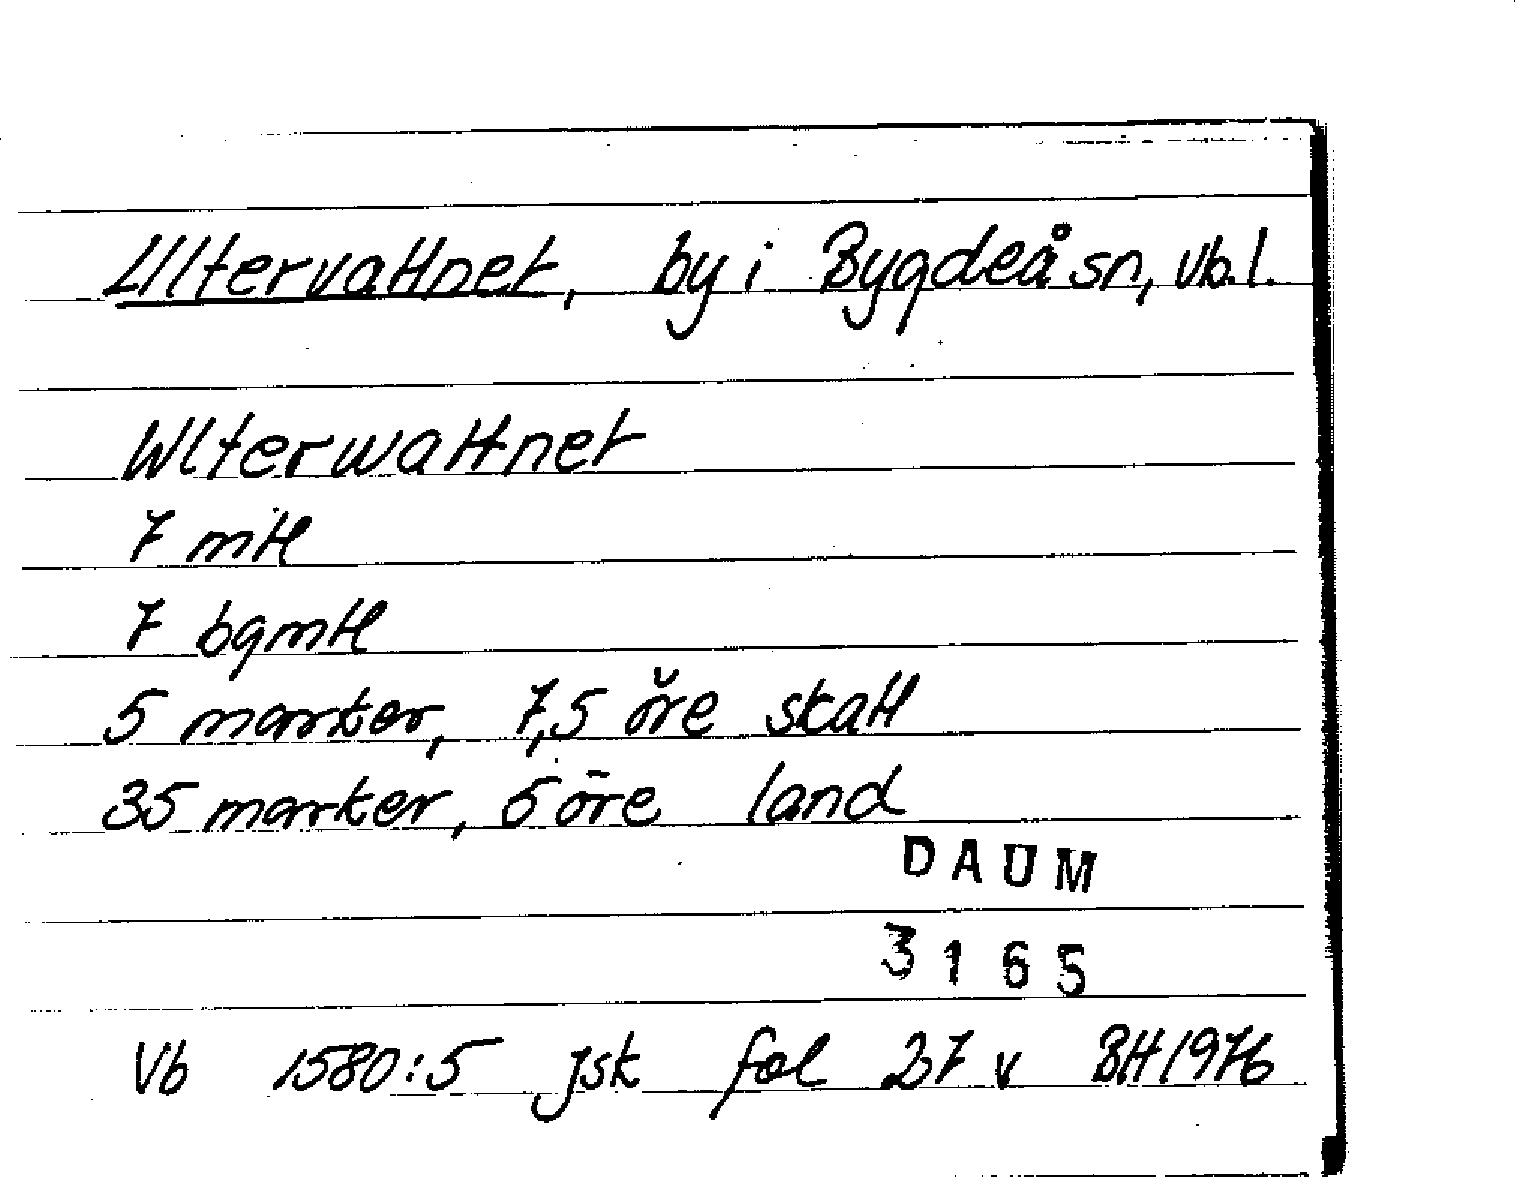 Ultervattnet, by i Bygdeå sn, Vb. l.
Wlterwattnet
7 mtl
7 bgmtl
5 marker, 7,5 öre skatt
35 marker, 5 öre land
DAUM
3165
Vb 1580:5 jsk fol 27 v BH1976